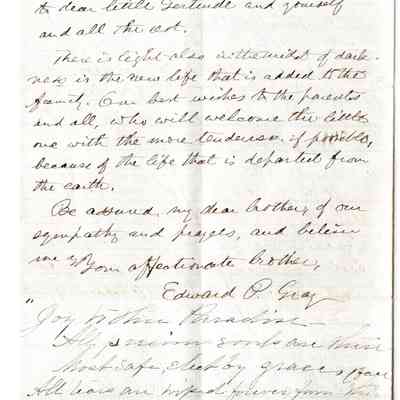 to dear little Gertrude and yourself
and all the rest.
There is light also in the midst of dark-
ness is the new life that is added to the
family. Our best wishes to the parents
and all, who will welcome the little
one with the more tenderness, if possible,
because of the life that is departed from
the earth.
Be assured, my dear brother, of our
sympathy and prayers, and believe
me
Your affectionate brother,
Edward P. Gray
"Joy
souls are
Most safe, elect by grace
All tears are wiped forever from